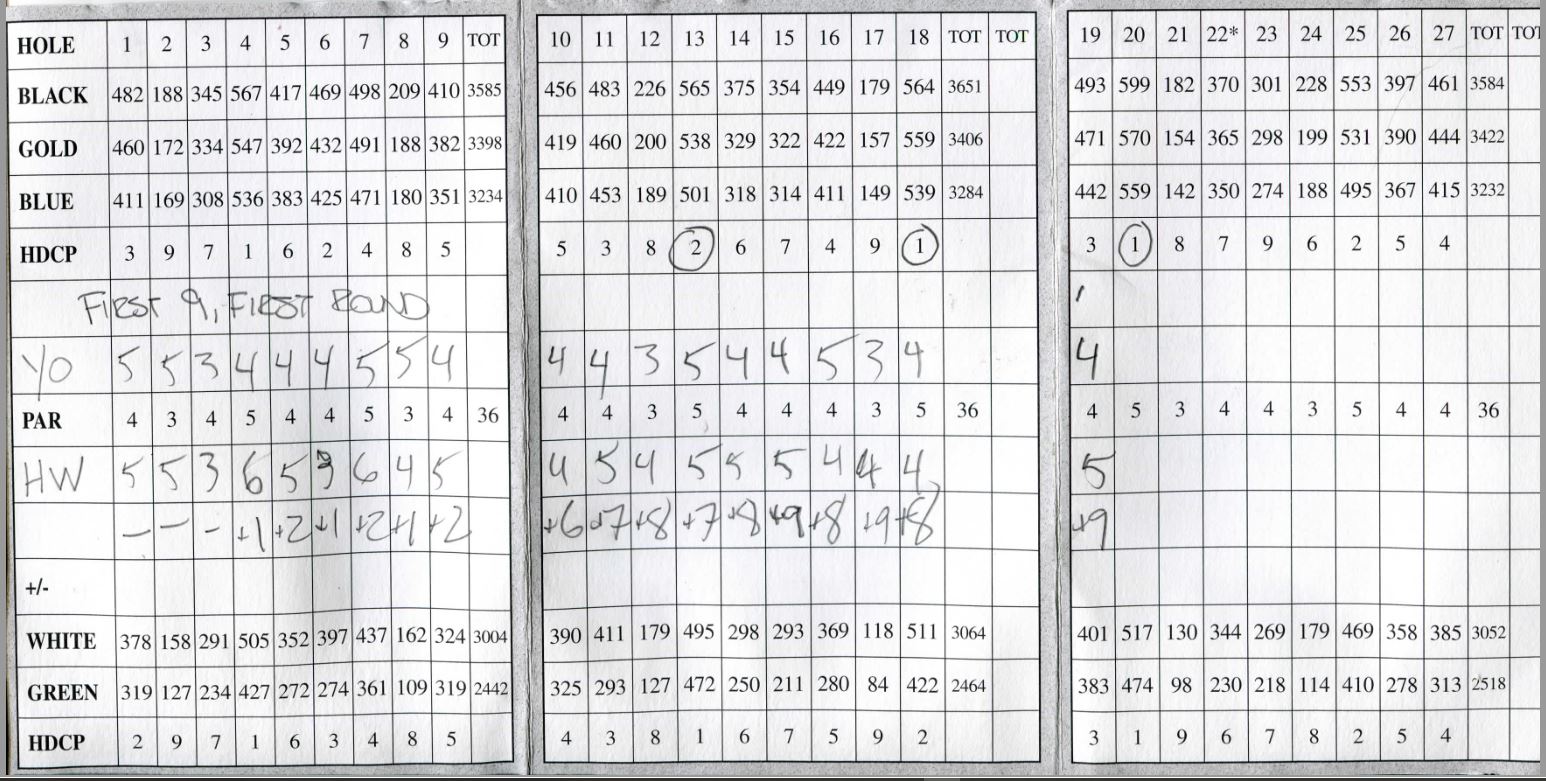 HOLE 1 2 3 4 5 6 7 8 9 TOT 10 11 12 13 14 15 16 17 18 TOT TOT 19 20 21 22* 23 24 25 26 27 TOT TOT
BLACK 482 188 345 567 417 469 498 209 410 3585 456 483 226 565 375 354 449 179 564 3651 493 599 182 370 301 228 553 397 461 3584
GOLD 460 172 334 547 392 432 491 188 382 3398 419 460 200 538 329 322 422 157 559 3406 471 570 154 365 298 199 531 390 444 3422
BLUE 411 169 308 536 383 425 471 180 351 3234 410 453 189 501 318 314 411 149 539 3284 442 559 142 350 274 188 495 367 415 3232
HDCP 3 9 7 1 6 2 4 8 5 5 3 8 2 6 7 4 9 1 3 1 8 7 9 6 2 5 4
FIRST 9, FIRST ROUND
YO 5 5 3 4 4 4 5 5 4 4 4 3 5 4 4 5 3 4 4
PAR 4 3 4 5 4 4 5 3 4 36 4 4 3 5 4 4 4 3 5 36 4 5 3 4 4 3 5 4 4 36
HW 5 5 3 6 5 3 6 4 5 4 5 4 5 5 5 4 4 4 5
– – – +1 +2 +1 +2 +1 +2 +6 +7 +8 +7 +8 +9 +8 +9 +8 +9
+/-
WHITE 378 158 291 505 352 397 437 162 324 3004 390 411 179 495 298 293 369 118 511 3064 401 517 130 344 269 179 469 358 385 3052
GREEN 319 127 234 427 272 274 361 109 319 2442 325 293 127 472 250 211 280 84 422 2464 383 474 98 230 218 114 410 278 313 2518
HDCP 2 9 7 1 6 3 4 8 5 4 3 8 1 6 7 5 9 2 3 1 9 6 7 8 2 5 4